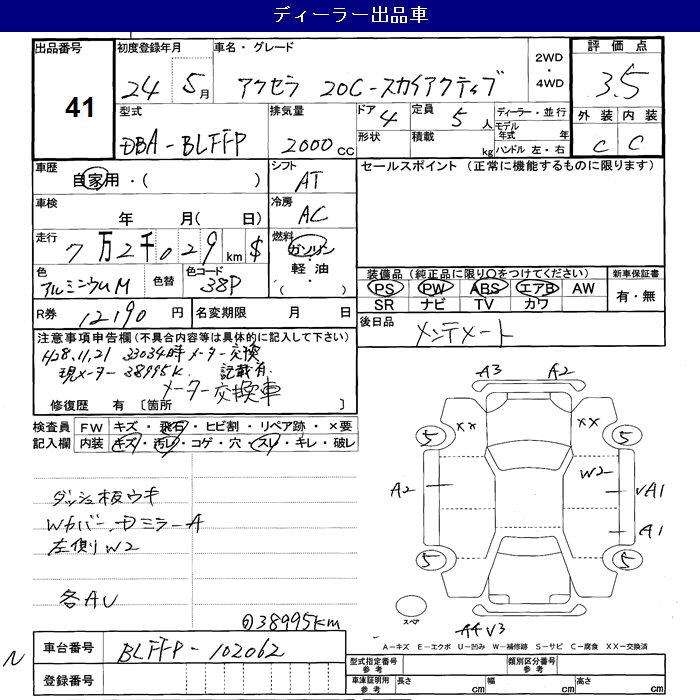 ディーラー出品車
出品番号 41
初度登録年月 24 5月
車名・グレード アクセラ 20C-スカイアクティブ
2WD・4WD
評価点 3.5
外装 内装
C C
型式 DBA-BLFFP
排気量 2000cc
ドア 4
定員 5人
形状
積載 kg
ディーラー・並行
モデル年式 年
ハンドル 左・右
車歴 自家用・( )
シフト AT
セールスポイント (正常に機能するものに限ります)
車検 年 月( 日)
冷房 AC
走行 7万2千029km $
燃料 ガソリン・軽油・( )
色 アルミニウムM
色替
色コード 38P
装備品 (純正品に限り○をつけてください)
PS PW ABS エアB AW
SR ナビ TV カワ
新車保証書
有・無
R券 12190円
名変期限 月 日
後日品 メンテノート
注意事項申告欄(不具合内容等は具体的に記入して下さい)
H28.11.21 33034時 メーター交換
現メーター 38995K 記載有
メーター交換車
修復歴 有 [箇所 ]
検査員記入欄
FW キズ・飛石・ヒビ割・リペア跡・×要
内装 キズ・汚レ・コゲ・穴・スレ・キレ・破レ
A3 A2
5 5
XX XX
A2 W2 A1
A1
5 5
スペア
A4 V3
ダッシュ板ウキ
Wカバー、Dミラー A
左側リW2
各AU
38995km
N
車台番号 BLFFP-102062
登録番号
A-キズ E-エクボ U-凹み W-補修跡 S-サビ C-腐食 XX-交換済
型式指定番号 参考
類別区分番号 参考
車庫証明用 参考 長さ cm 幅 cm 高さ cm